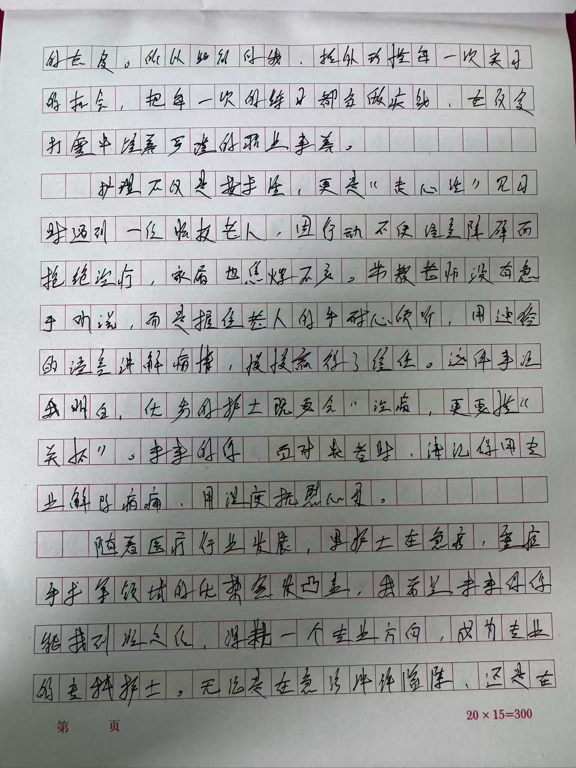 的态度。所以始终付出,格外珍惜每一次实习
的机会,把每一次的练习都立做实战,也改变
打牢牢注基可谨的职业素养。
护理不仅是技术活,更是“走心活”见习
时遇到一位临收老人,因行动不便语言障碍而
拒绝治疗,家属也焦燥不安。带教老师没有急
于劝说,而是握住老人的手耐心倾听,用通俗
的语言讲解病情,慢慢赢得了信任。这件事让
我明白,优秀的护士既要会“治病,更要懂“
关怀”。未来的你 面对患者时,请记得用专
业解除病痛,用温度抚慰心灵。
随着医疗行业发展,男护士在急救,重症
手术等领域的优势愈发凸显,我希望未来你
能找到定位,深耕一个专业方向,成为专业
的专科护士。无论是在急诊冲锋陷阵,还是在
第 页
20×15=300